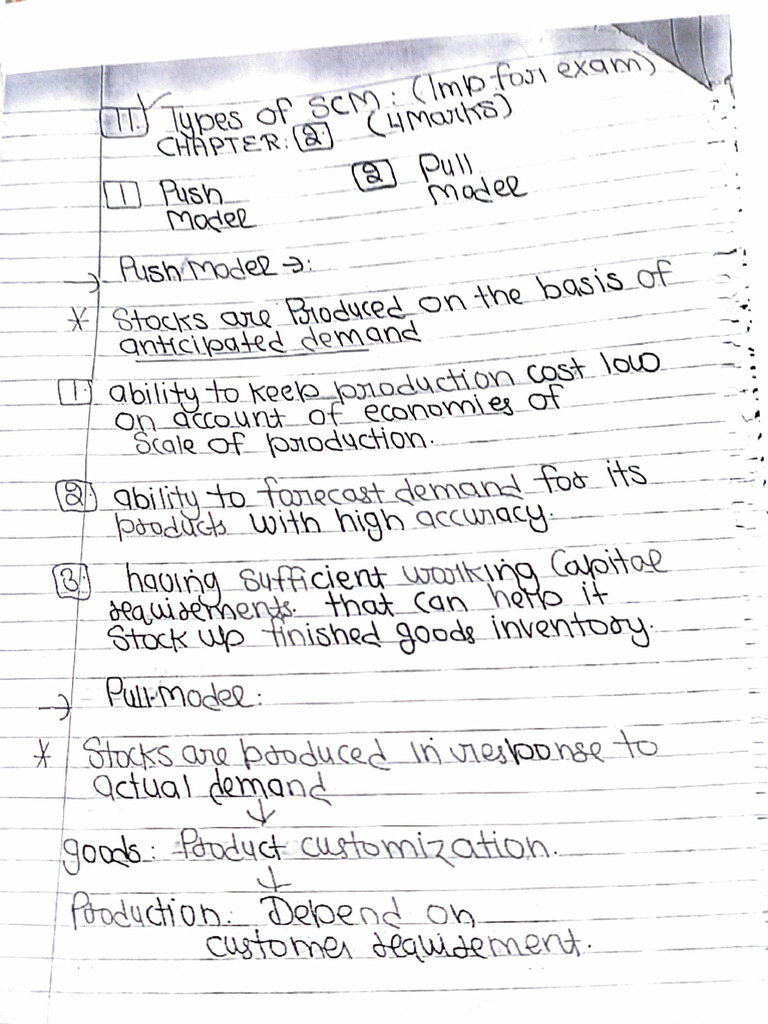 11. Types of SCM: (Imp for exam)
CHAPTER: 2 (4 Marks)
1 Push Model
2 Pull Model
→ Push Model →:
* Stocks are Produced on the basis of
anticipated demand
1. ability to keep production cost low
on account of economies of
Scale of production.
2. ability to forecast demand for its
products with high accuracy.
3. having sufficient working Capital
requirements. that can help it
Stock up finished goods inventory.
→ Pull-Model:
* Stocks are produced in response to
actual demand
↓
goods: Product customization.
↓
Production: Depend on
customer requirement.